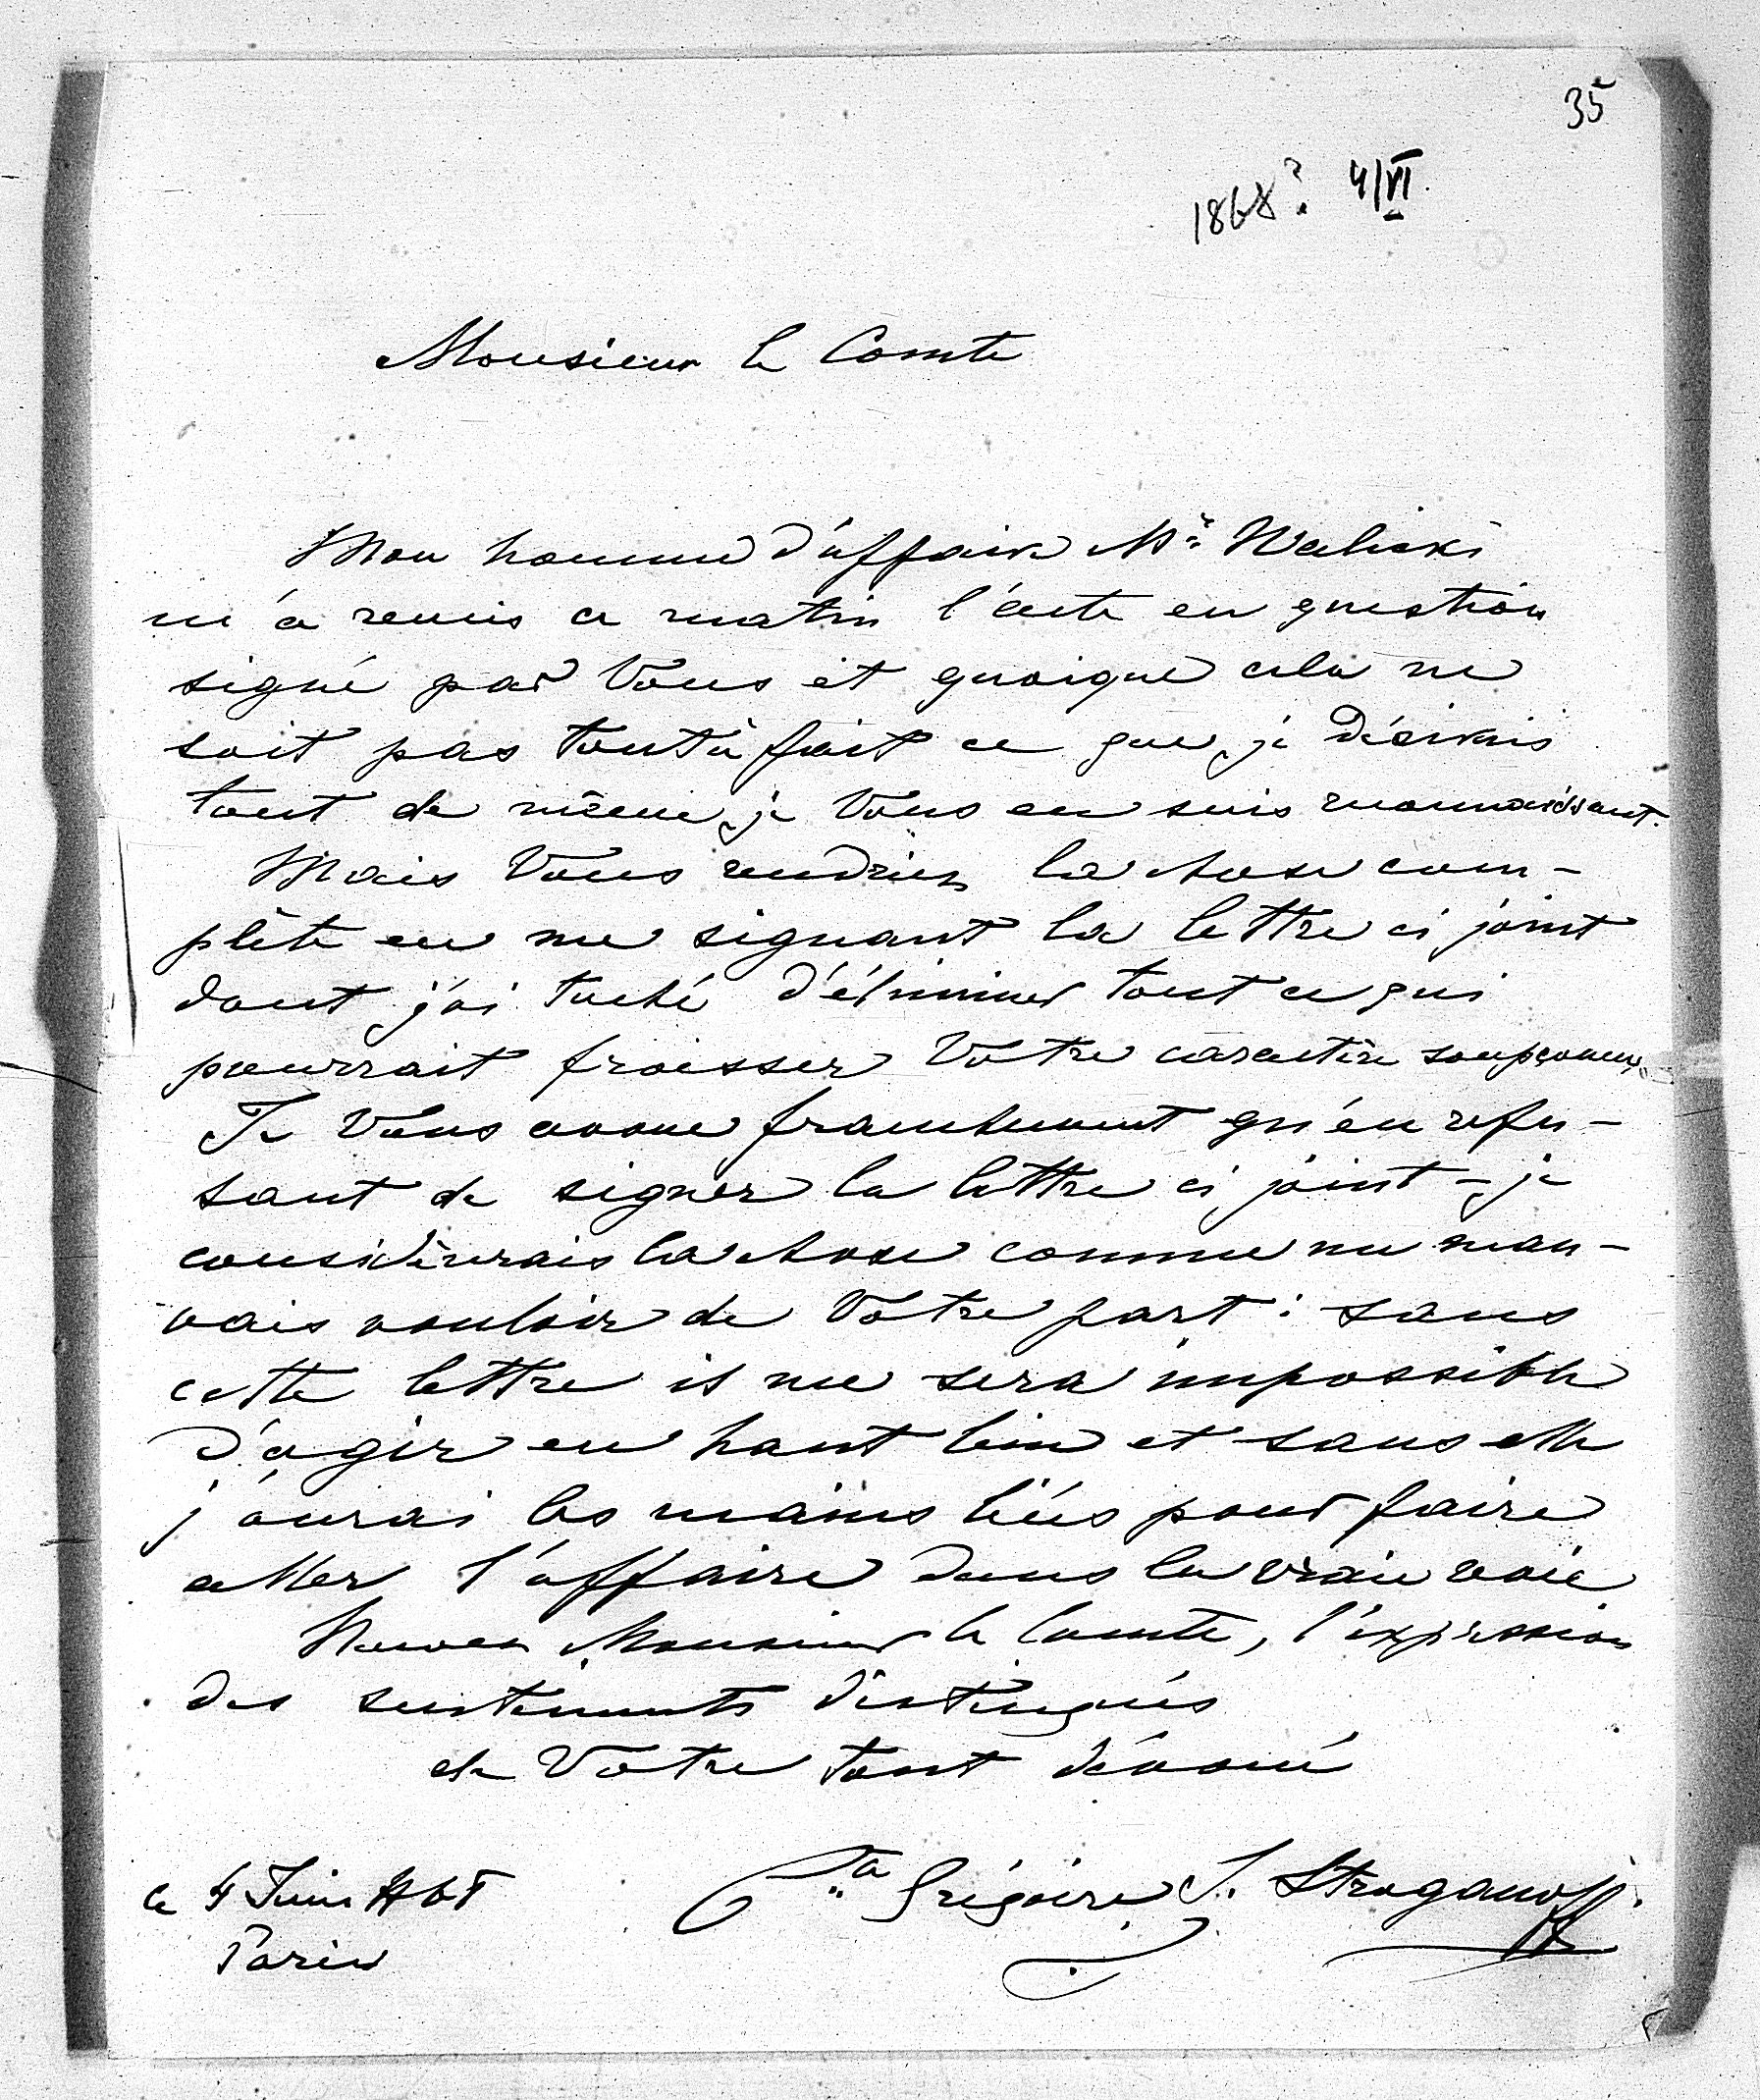 35
1868? 4/VI.
Monsieur le Comte
Mon homme d'affaire Mr Walicki
m'a remis ce matin l'acte en question
signé par Vous et quoique cela ne
soit pas tout à fait ce que je désirais
tout de même je Vous en suis reconnaissant.
Mais Vous rendriez la chose com-
plète en me signant la lettre ci joint
dont j'ai taché d'éliminer tout ce qui
pourrait froisser Votre caractère soupçoneux.
Je Vous avoue franchement qu'en refu-
sant de signer la lettre ci joint - je
considèrerais la chose comme un mau-
vais vouloir de Votre part: sans
cette lettre il me sera impossible
d'agir en haut lieu et sans elle
j'aurai les mains liées pour faire
aller l'affaire dans la vraie voie
Monsieur le Comte, l'expression
des sentiments distingués
de Votre tout dévoué
Cte Grégoire S. Stroganoff.
le 4 Juin
Paris